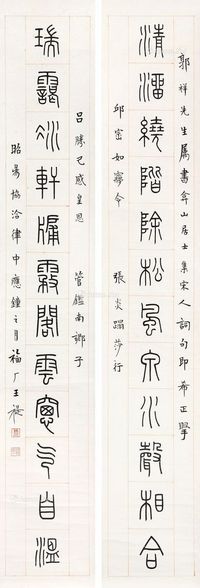 郭祥先生屬書弇山居士集宋人詞句即希正擘
清溜繞階除松風泉水聲相合
邱崈如夢令 張炎蹋莎行
呂勝己感皇恩 管鑑南鄉子
瑞靄軒牖霧閣雲窗自溫
昭陽協洽律中應鐘之月福厂王禔